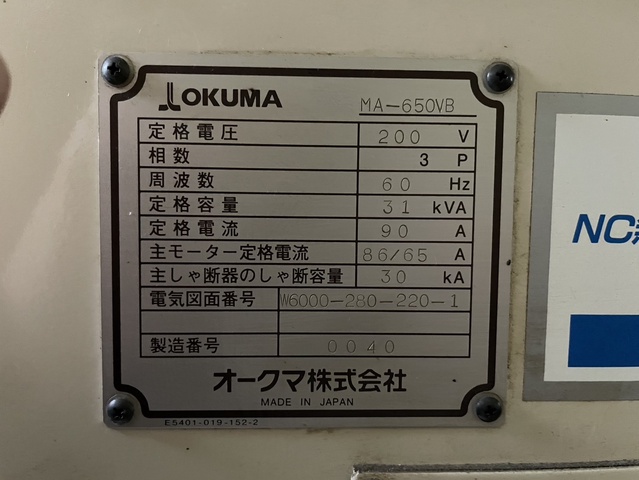 OKUMA MA-650VB
定格電圧 200 V
相数 3 P
周波数 60 Hz
定格容量 31 kVA
定格電流 90 A
主モーター定格電流 86/65 A
主しゃ断器のしゃ断容量 30 kA
電気図面番号 W6000-280-220-1
製造番号 0040
オークマ株式会社
MADE IN JAPAN
E5401-019-152-2
NC